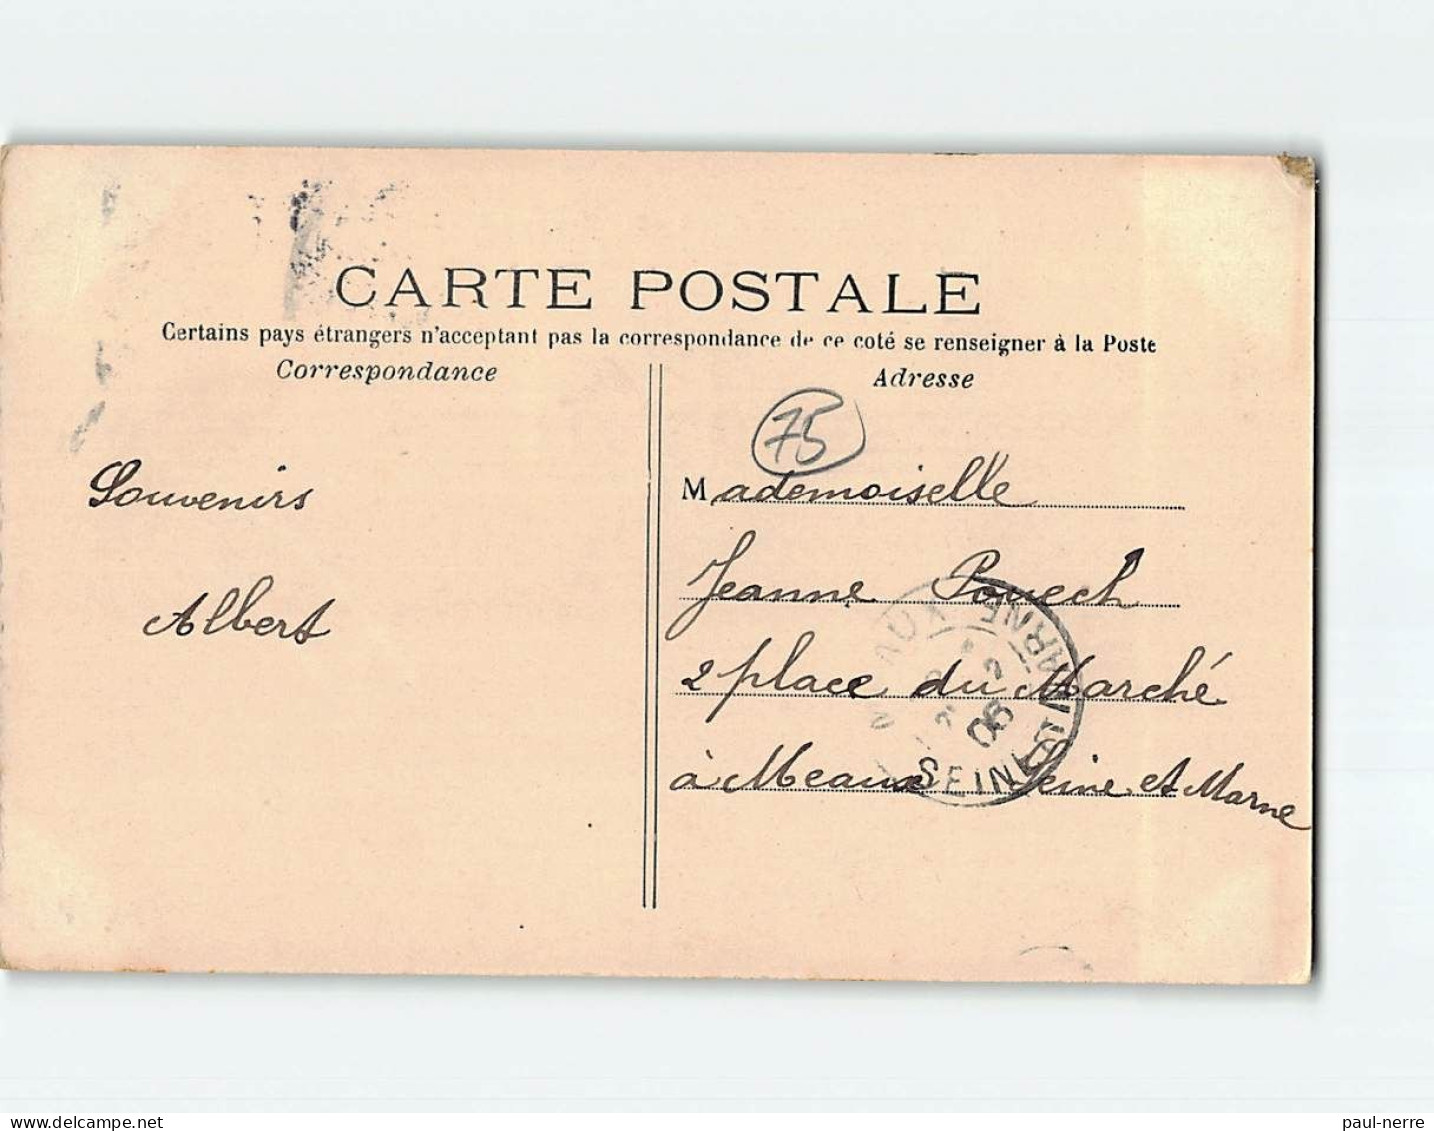 CARTE POSTALE
Certains pays étrangers n'acceptant pas la correspondance de ce coté se renseigner à la Poste
Correspondance
Adresse
75
Souvenirs
Albert
Mademoiselle
Jeanne Pouech
2 place du Marché
à Meaux Seine et Marne
MEAUX
SEINE ET MARNE
06
delcampe.net
paul-nerre